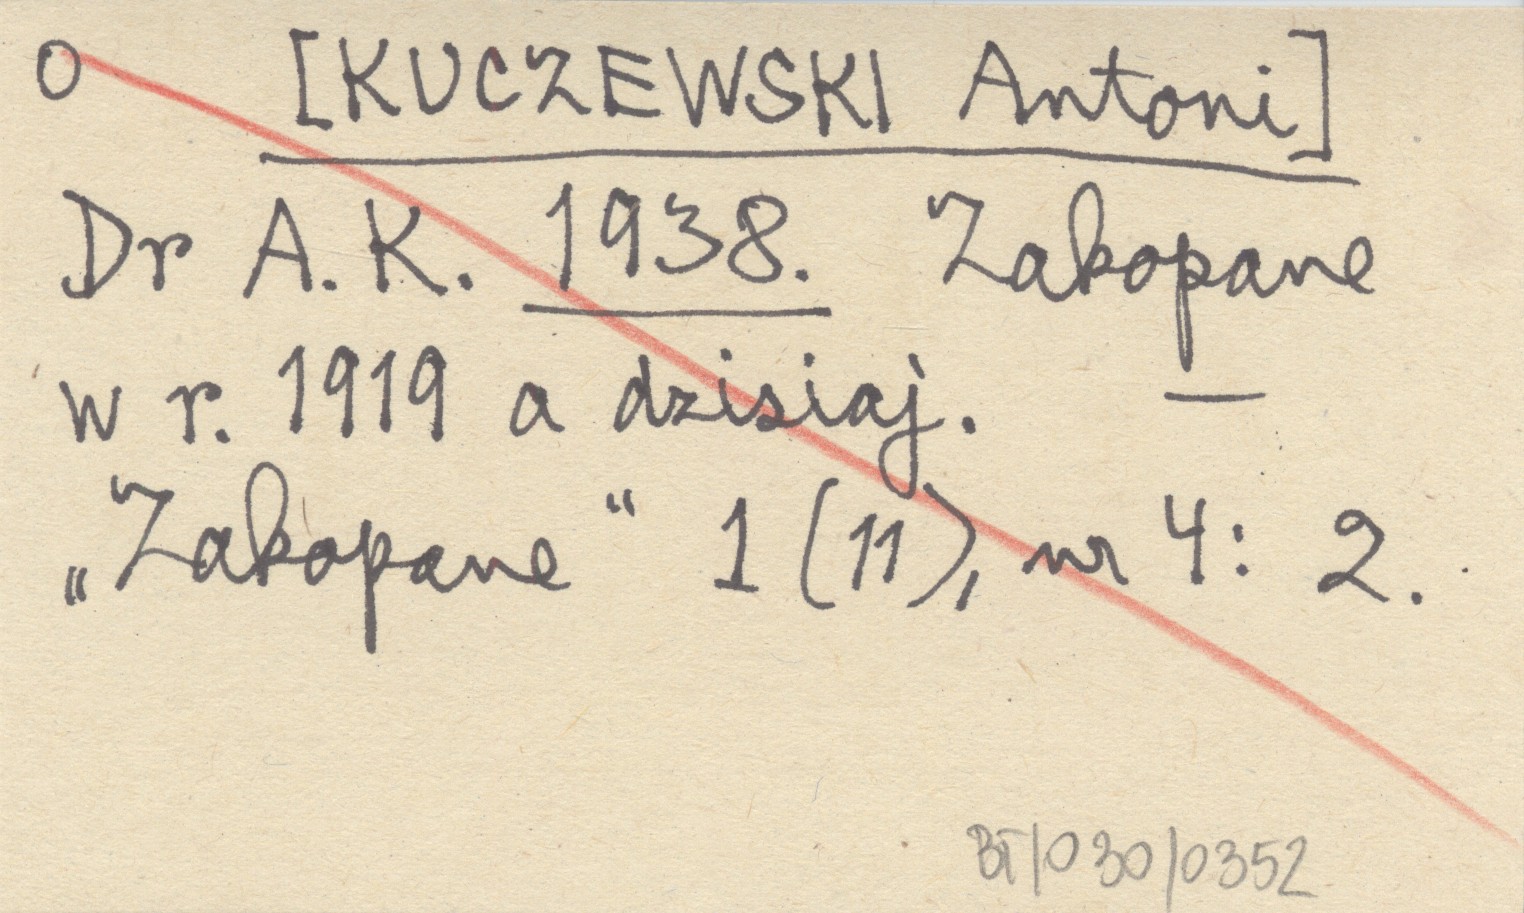 O [KUCZEWSKI Antoni]
Dr A.K. 1938. Zakopane
w r. 1919 a dzisiaj. —
„Zakopane“ 1 (11), nr 4: 2.
BT/030/0352